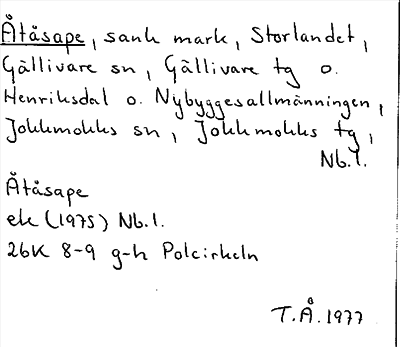 Åtåsape, sank mark, Storlandet,
Gällivare sn, Gällivare tg o.
Henriksdal o. Nybyggesallmänningen,
Jokkmokks sn, Jokkmokks tg,
Nb.l.
Åtåsape
ek (1975) Nb.l.
26K 8-9 g-h Polcirkeln
T.Å. 1977